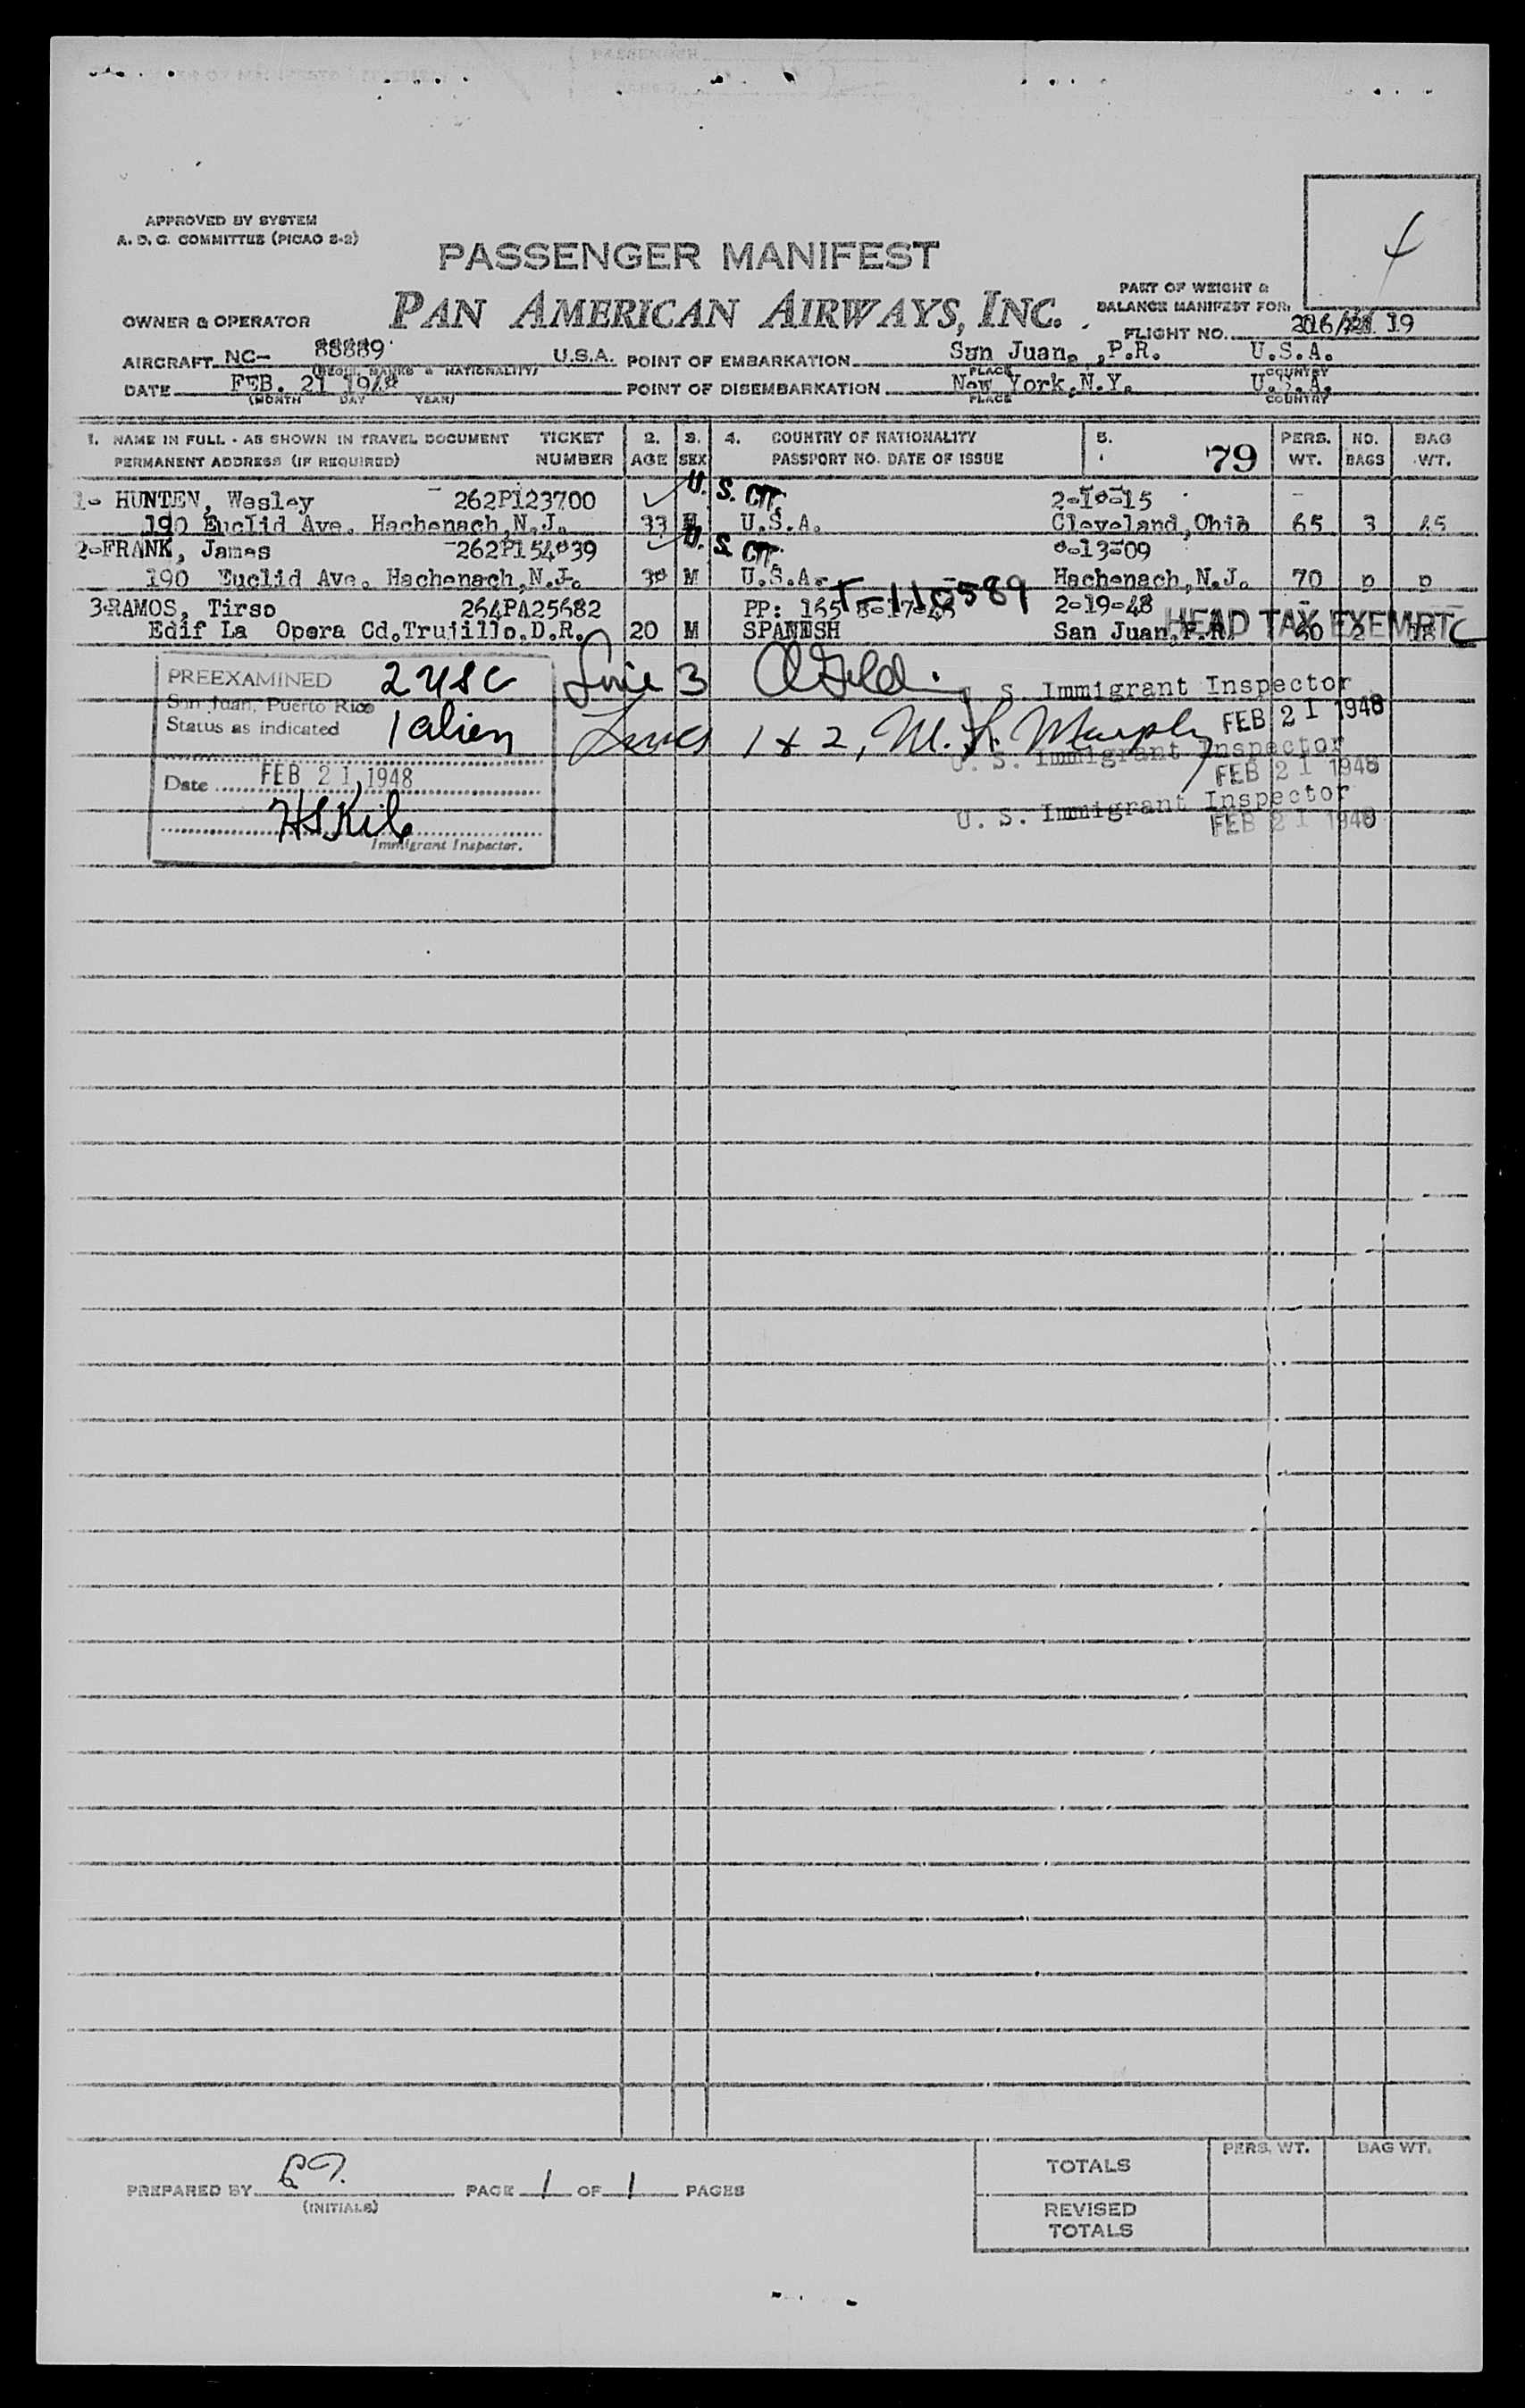 4
APPROVED BY SYSTEM
A. D. G. COMMITTEE (PICAO S-2)
PASSENGER MANIFEST
PART OF WEIGHT &
BALANCE MANIFEST FOR:
OWNER & OPERATOR PAN AMERICAN AIRWAYS, INC.
FLIGHT NO. 19
AIRCRAFT NC- 88889 U.S.A. POINT OF EMBARKATION San Juan, ,P.R. U.S.A.
(REGIS. MARKS & NATIONALITY) PLACE COUNTRY
DATE FEB. 21 1948 POINT OF DISEMBARKATION New York,N.Y. U.S.A.
(MONTH DAY YEAR) PLACE COUNTRY
1. NAME IN FULL - AS SHOWN IN TRAVEL DOCUMENT TICKET 2. 3. 4. COUNTRY OF NATIONALITY 5. PERS. NO. BAG
PERMANENT ADDRESS (IF REQUIRED) NUMBER AGE SEX PASSPORT NO. DATE OF ISSUE 79 WT. BAGS WT.
1- HUNTEN, Wesley 262P123700 U. S. CIT. 2-10-15
190 Euclid Ave. Hachenach,N.J. 33 M U.S.A. Cleveland,Ohio 65 3 45
2-FRANK, James 262P154039 U. S. CIT. -13-09
190 Euclid Ave. Hachenach,N.J. M U.S.A. Hachenach,N.J. 70
T-110589
3-RAMOS, Tirso 264PA25682 PP: 165 2-19-48
Edif La Opera Cd.Trujillo.D.R. 20 M SPANISH San Juan,P.R. HEAD TAX EXEMPT
PREEXAMINED 2 USC Line 3
San Juan, Puerto Rico U. S. Immigrant Inspector
Status as indicated 1 alien Lines 1 & 2, M. Murphy FEB 21 1948
U. S. Immigrant Inspector
Date FEB 21, 1948 FEB 21 1948
U. S. Immigrant Inspector
FEB 21 1948
Immigrant Inspector.
PERS. WT. BAG WT.
TOTALS
PREPARED BY PAGE 1 OF 1 PAGES
(INITIALS)
REVISED
TOTALS